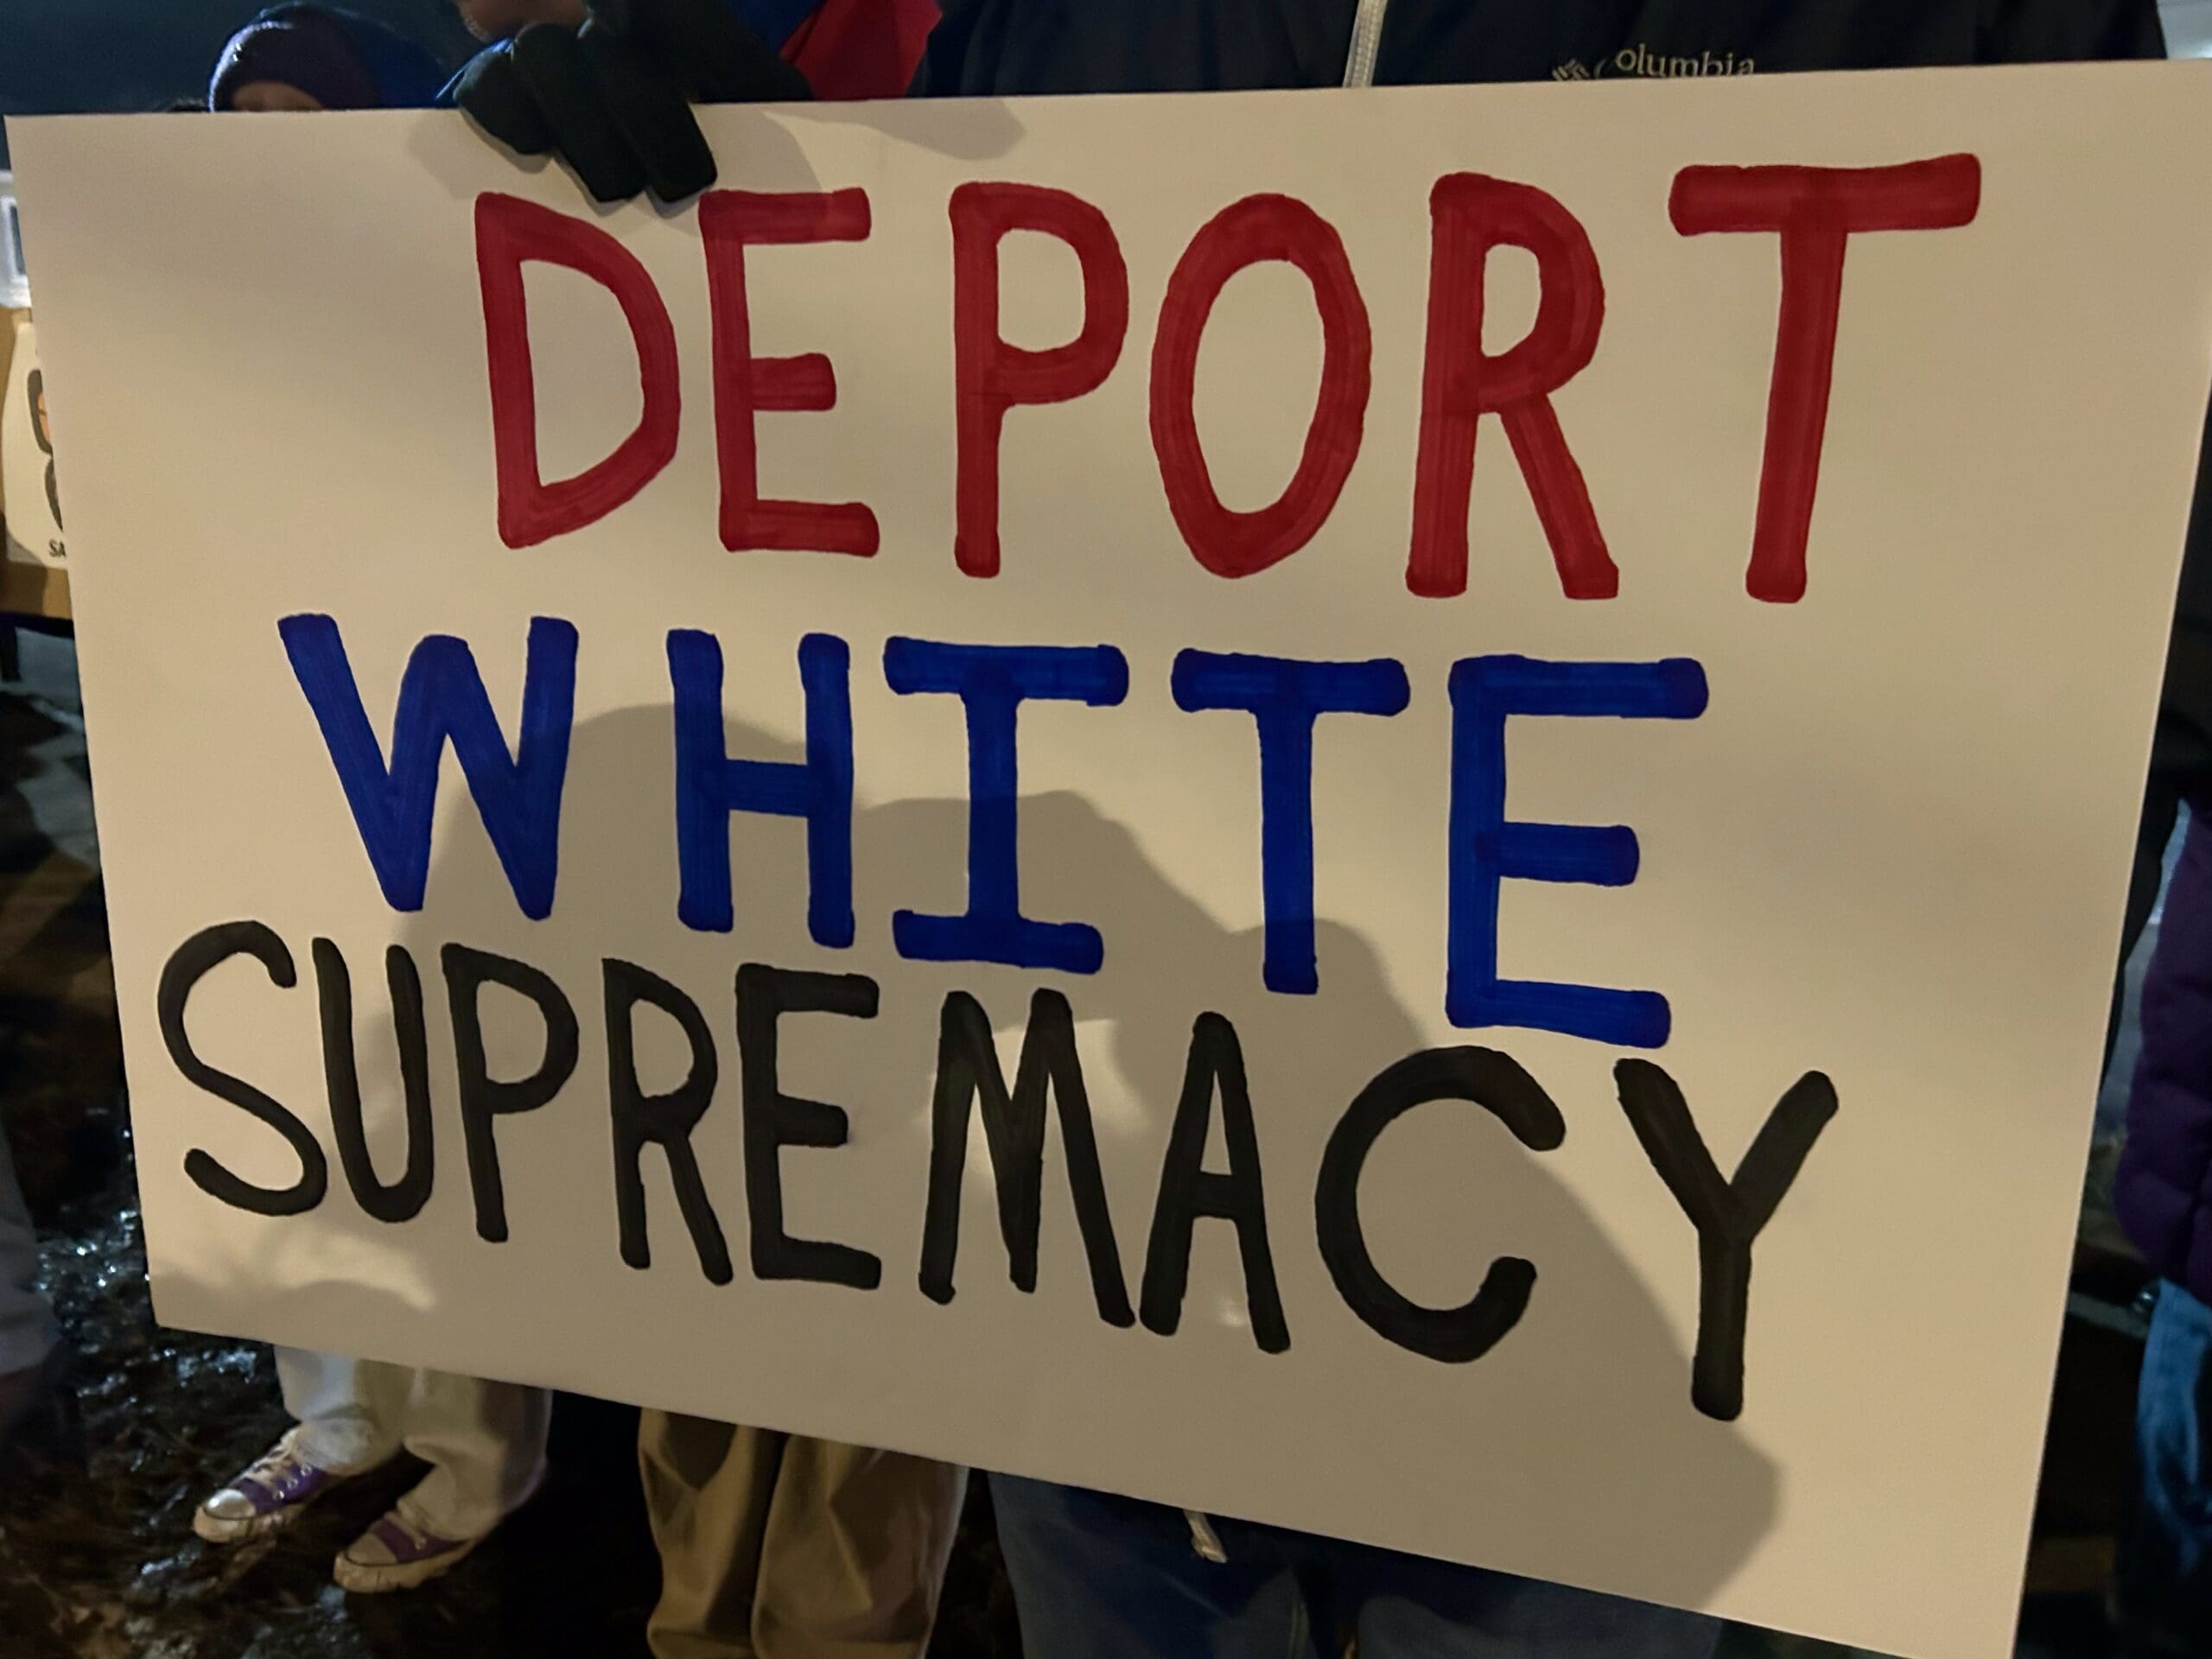 Columbia
DEPORT
WHITE
SUPREMACY
SA